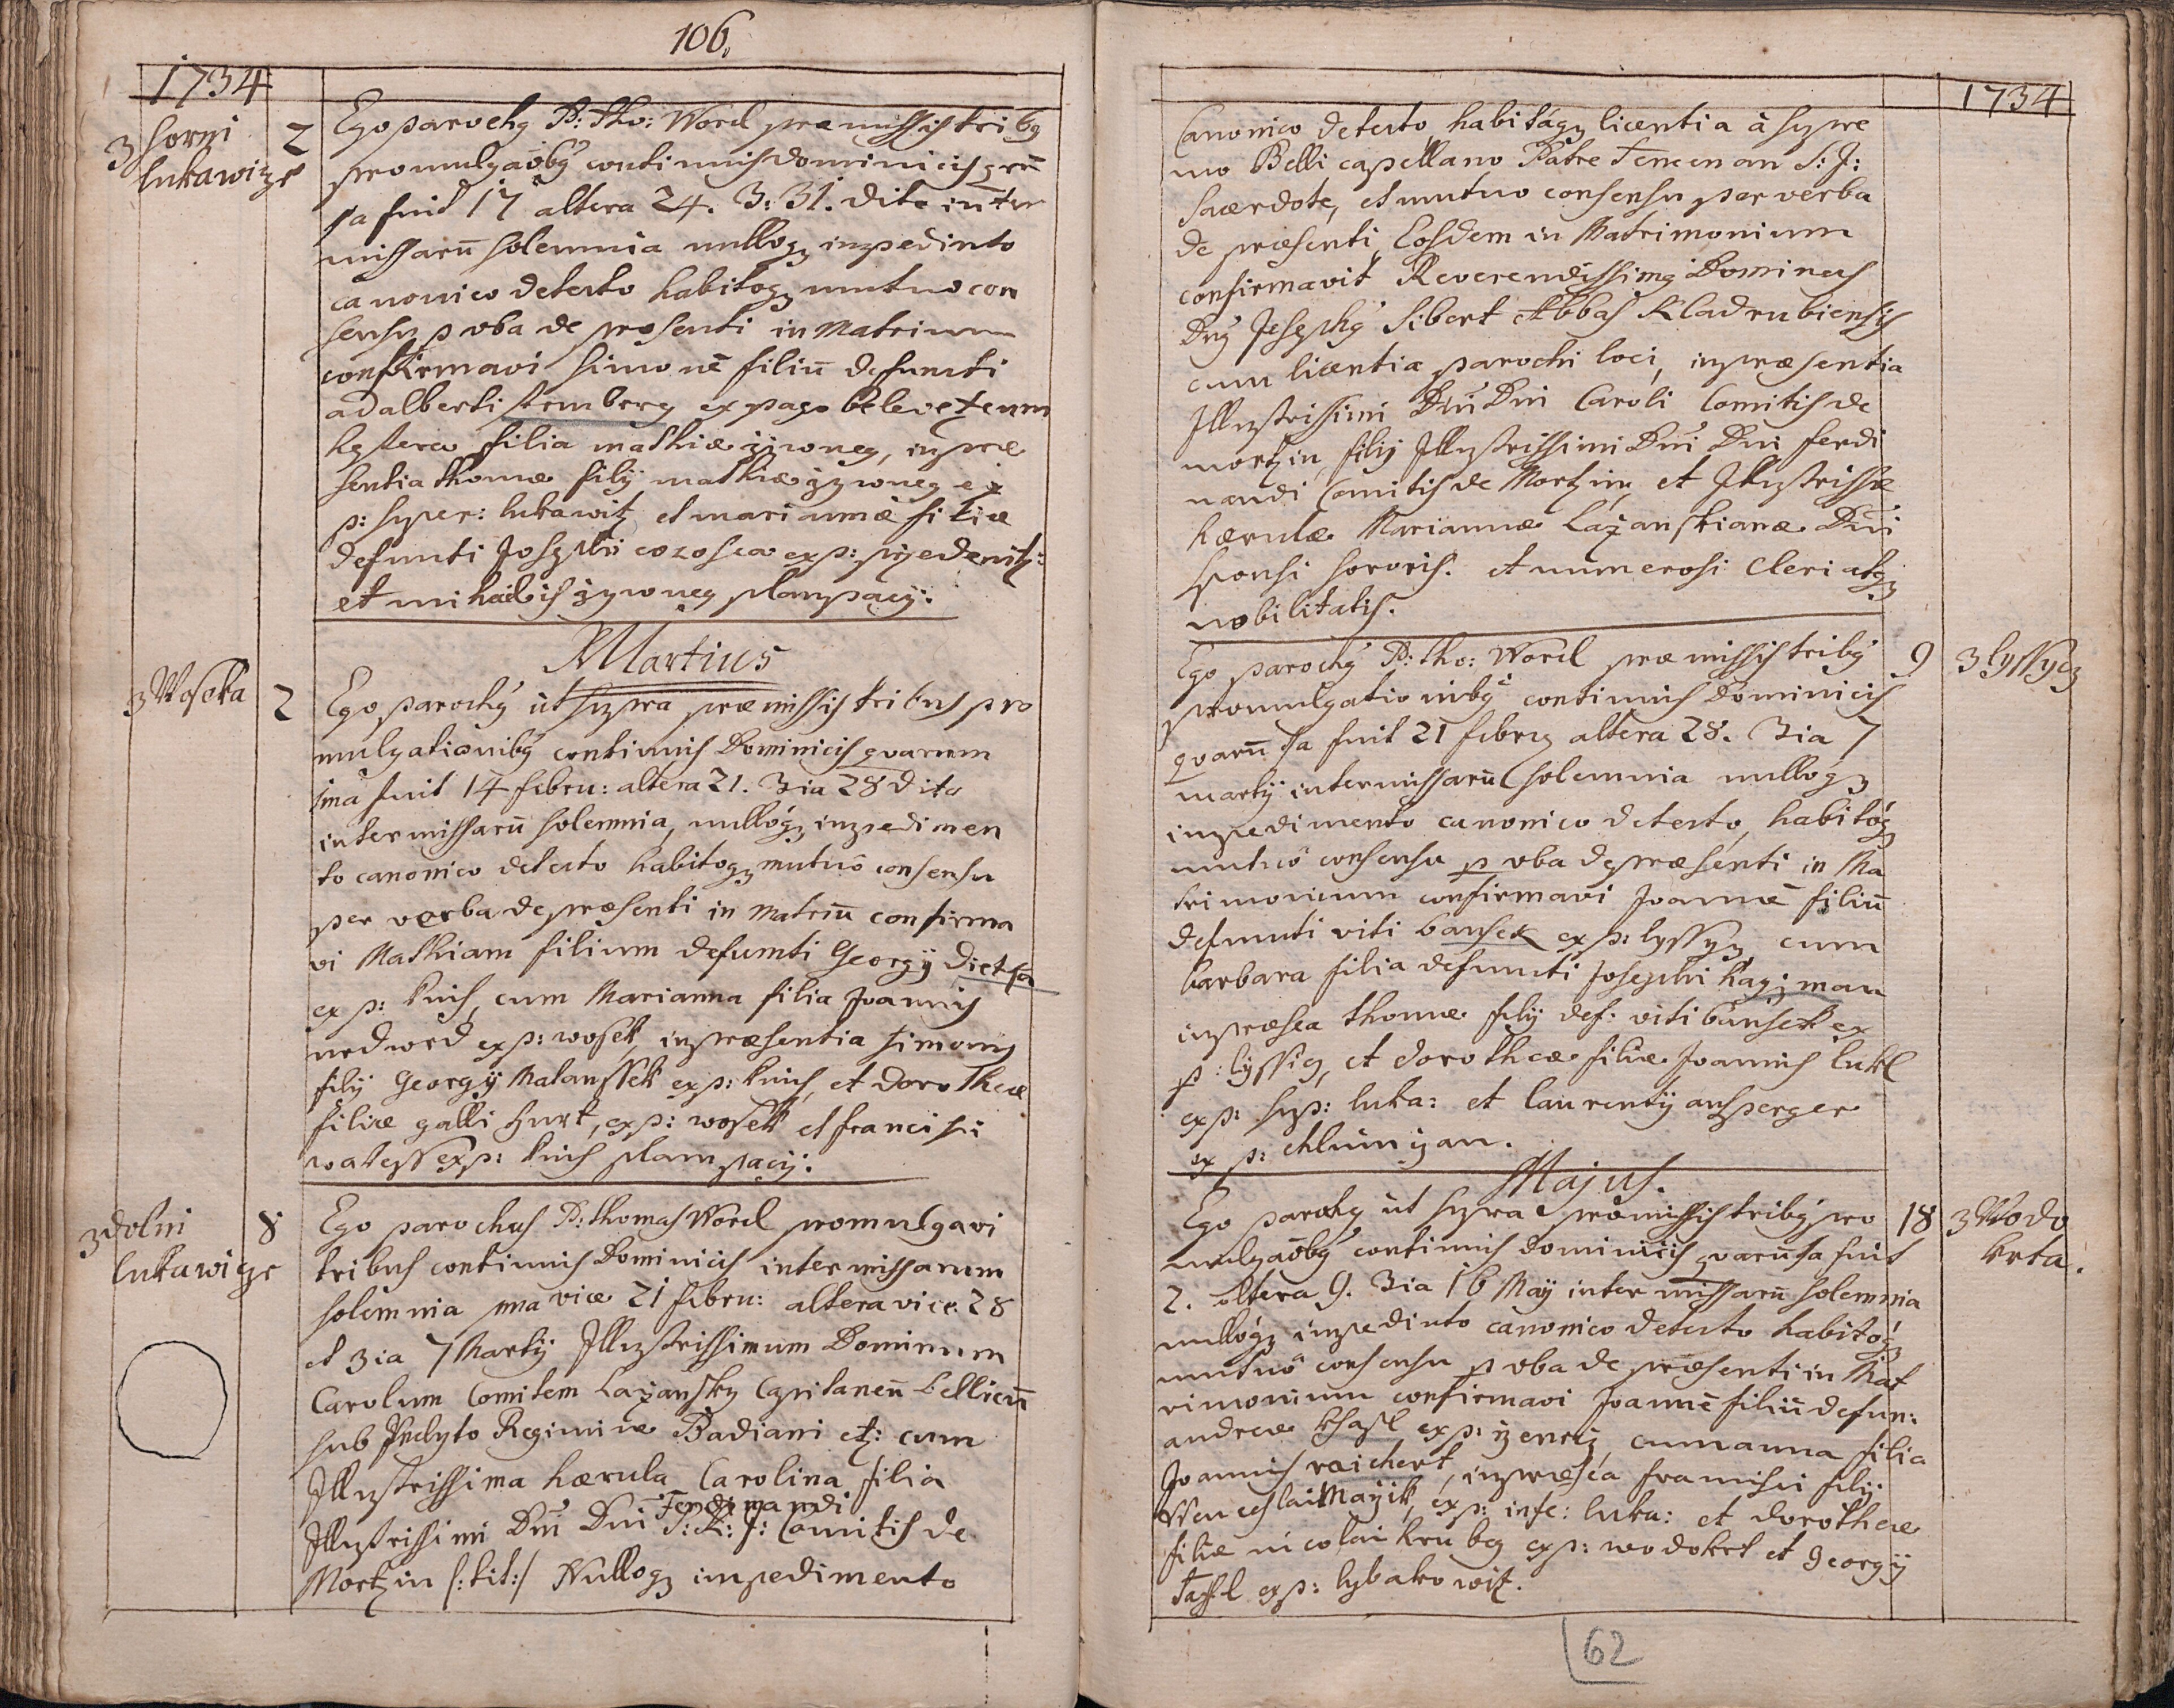 106.
1734
z horzi
lukawize
2
Ego parochg P: Tho: Worel praemissis tribg
promulgaõbg continuis dominicis qrũ
1a fuit 17 altera 24. 3: 31. dito inter
missarũ solemnia nullogz impedimto
canonico detecto habitogz mutuo con
sensu p vba de presenti in Matrimm
confirmavi Simonẽ filiũ defuncti
adalberti ex pago
filia mathiae ziwneg, in prae
sentia thomae filÿ mathiae zywneg ex
p: super: lukawitz et mariannae filiae
defuncti Josephi ex p:
et mihaelis zywneg
Martius
z Woseka
2
Ego parochg ut supra praemissis tribus pro
mulgationibg continuis Dominicis quarum
1ma fuit 14 febru: altera 21. 3ia 28 dito
inter missarũ solemnia, nullogz impedimen
to canonico detecto habitogz mutuô consensu
per verba de praesenti in Matriũ confirma
vi Mathiam filium defuncti Georgÿ
ex p: knih, cum Marianna filia Joannis
nedwed ex p: wosek, in praesentia Simonis
filÿ Georgÿ Malanssek ex p: knih, et Dorotheae
filiae galli hurt, ex p: wosek et francisci
ex p: knih
z dolni
lukawize
8
Ego parochus P: thomas Worel promulgavi
tribus continuis Dominicis inter missarum
solemnia 1ma vice 21 febru: altera vice 28
et 3ia 7 Martÿ Illustrissimum Dominum
Carolum Comitem Lažansky Capitaneũ bellicũ
sub Inclyto Regimine Badiani etz: cum
Illustrissima haerula Carolina filia
Illustrissimi Dñi Dñi Ferdinandi S: R: I: Comitis de
Mortzin /:tit:/ Nullogz impedimento
1734
Canonico detecto, habitâgz licentia à supre
mo Belli capellano Patre S: J:
Sacerdote, et mutuo consensu per verba
de praesenti Eosdem in Matrimonium
confirmavit Reverendissimg Dominus
Dng Josephg Sibert Abbas Kladrubiensis
cum licentia parochi loci, in praesentia
Illustrissimi Dñi Dñi Caroli Comitis de
mortzin filÿ Illustrissimi Dñi Dñi ferdi
nandi Comitis de Mortzin, et Illustrissae
haerulae Mariannae Lažanskianae Dñi
sponsi sororis. et numerosi Cleri atgz
nobilitatis.
Ego parochg P: tho: Worel praemissis tribg
9
z lyssycz
promulgationibg continuis Dominicis
quarũ 1a fuit 21 febru altera 28. 3ia 7
martÿ inter missarũ solemnia nullogz
impedimento canonico detecto, habitogz
mutuô consensu p vba de praesenti in Ma
trimonium confirmavi Joannẽ filiũ
defuncti viti bansek ex p: lyssyz cum
barbara filia defuncti Josephi
in praesea thomae filÿ def: viti bansek ex
p: lyssig, et dorotheae filiae Joannis lukl
ex p: sup: luka: et laurentÿ ansperger
ex p:
Majus.
Ego parochg ut supra praemissis tribg pro
18
z Wodo
krta.
mulgaõbg continuis dominicis quarũ 1a fuit
2. altera 9. 3ia 16 Maÿ inter missarũ solemnia
nullogz impedimto canonico detecto habitogz
mutuô consensu p vba de praesenti in Mat
rimonium confirmavi Joannẽ filiũ defun:
andreae ex p: cum anna filia
Joannis reichert, in praesêa francisci filÿ
Wenceslai Mayik, ex p: infe: luka: et dorotheae
filiae nicolai hrubeg ex p: wodokrt et georgÿ
ex p: lybakowitz.
62